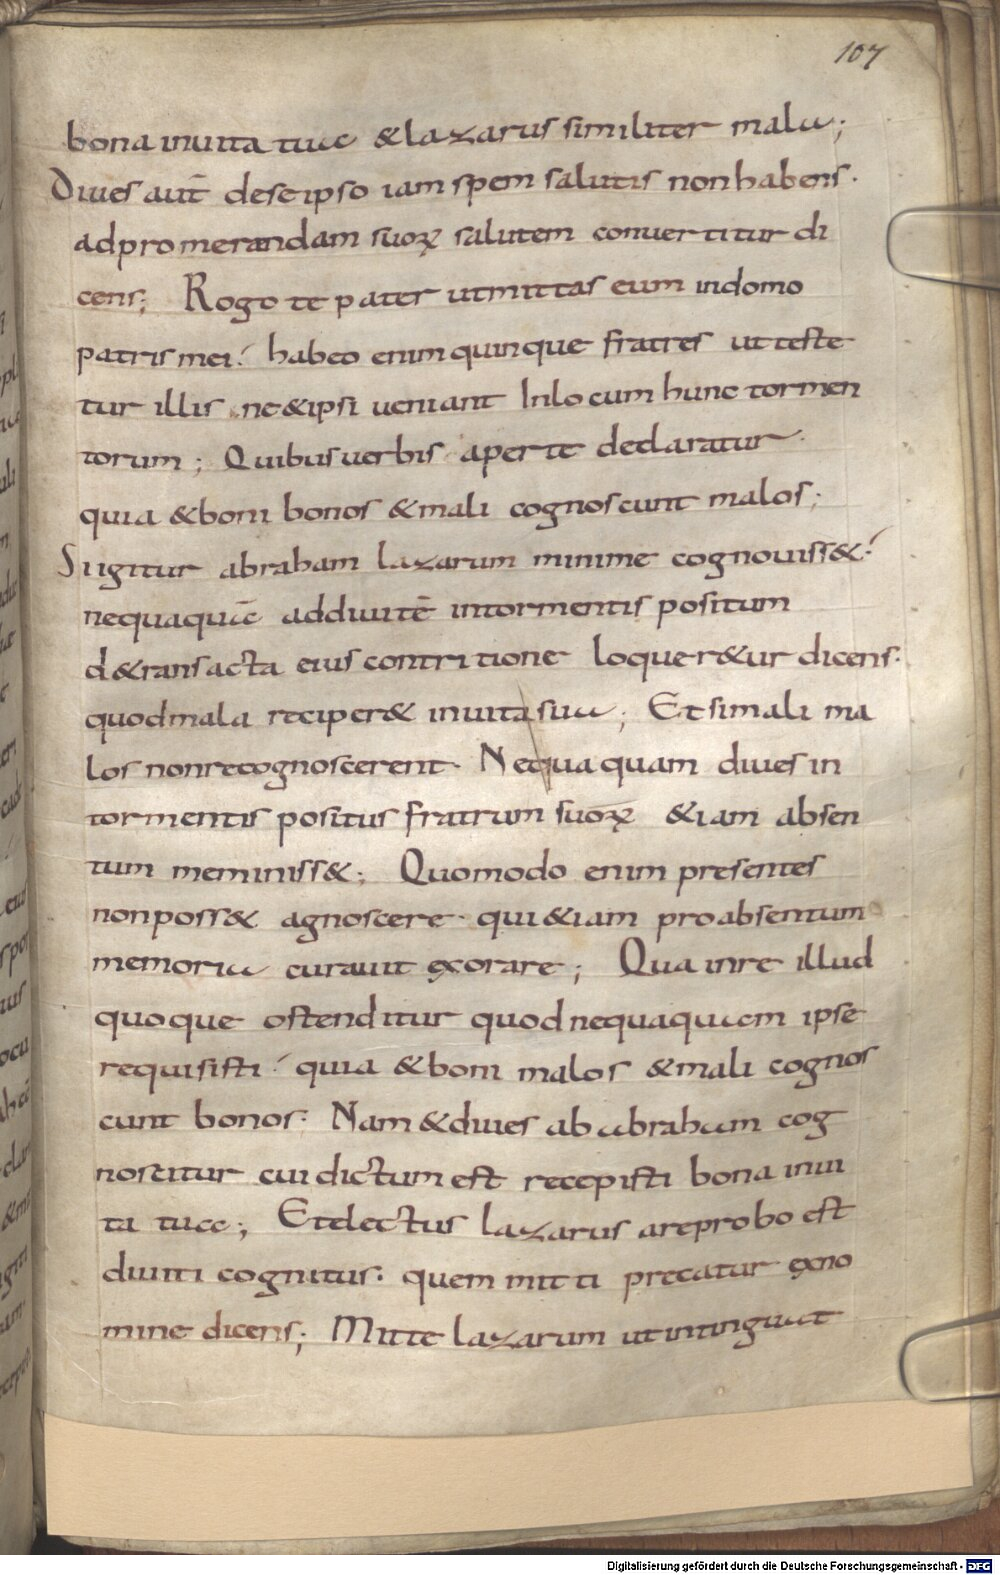 107
bona inuita tua & lazarus similiter mala;
Diues aut̄ de se ipso iam spem salutis non habens.
ad promerandam suoꝝ salutem conuertitur di
cens; Rogo te pater ut mittas eum in domo
patris mei. habeo enim quinque fratres ut teste
tur illis ne & ipsi ueniant In locum hunc tormen
torum; Quibus uerbis aperte declaratur
quia & boni bonos & mali cognoscunt malos;
Si igitur abraham lazarum minime cognouiss&.
nequaquā ad diuitē in tormentis positum
d& ransacta eius contritione loquer&ur dicens.
quod mala reciper& in uita sua; Et si mali ma
los non recognoscerent. Nequaquam diues in
tormentis positus fratrum suoꝝ &iam absen
tum meminiss&; Quomodo enim presentes
non poss& agnoscere. qui &iam pro absentum
memoria curauit exorare; Qua in re illud
quoque ostenditur quod nequaquam ipse
requisisti. quia & boni malos & mali cognos
cunt bonos. Nam & diues ab abraham cog
noscitur cui dictum est recepisti bona in ui
ta tua; Et electus lazarus a reprobo est
diuiti cognitus. quem mitti precatur ex no
mine dicens; Mitte lazarum ut intinguat
Digitalisierung gefördert durch die Deutsche Forschungsgemeinschaft - DFG